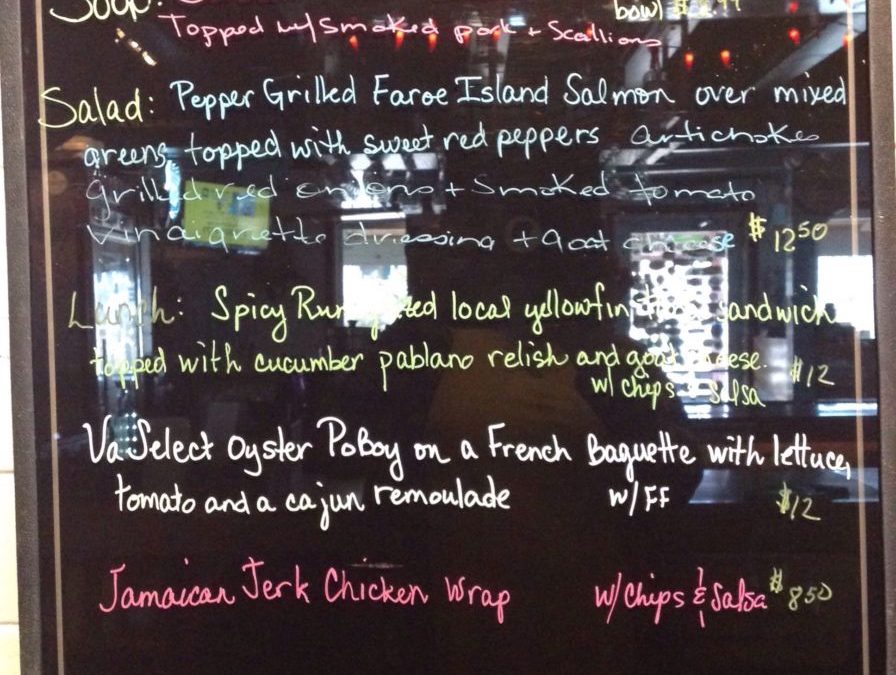 Soup:
bowl $
Topped w/ Smoked pork + Scallions
Salad: Pepper Grilled Faroe Island Salmon over mixed
greens topped with sweet red peppers artichokes
grilled red onions + smoked tomato
vinaigrette dressing + goat cheese $12.50
Lunch: Spicy local yellowfin sandwich
topped with cucumber pablano relish and goat cheese. $12
w/ chips & salsa
Va Select Oyster PoBoy on a French Baguette with lettuce,
tomato and a cajun remoulade w/FF $12
Jamaican Jerk Chicken Wrap w/Chips & Salsa $8.50